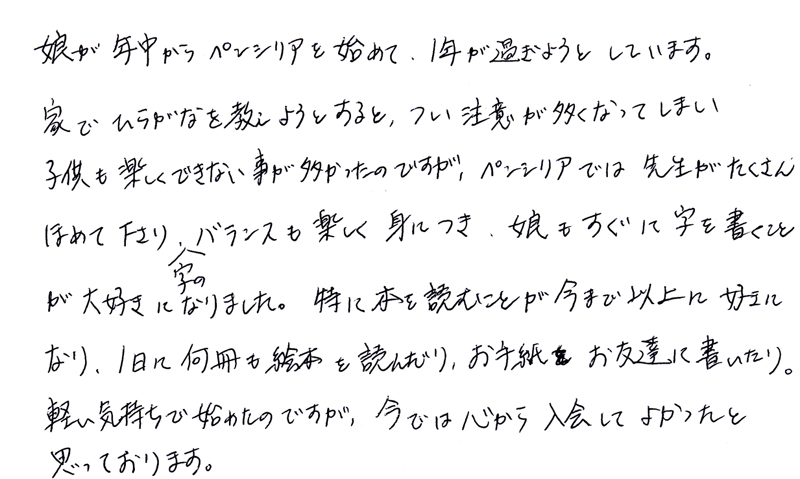 娘が年中からペンシリアを始めて、1年が過ぎようとしています。
家でひらがなを教えようとすると、つい注意が多くなってしまい
子供も楽しくできない事が多かったのですが、ペンシリアでは先生がたくさん
ほめて下さり、字のバランスも楽しく身につき、娘もすぐに字を書くこと
が大好きになりました。特に本を読むことが今まで以上に好きに
なり、1日に何冊も絵本を読んだり、お手紙をお友達に書いたり。
軽い気持ちで始めたのですが、今では心から入会してよかったと
思っております。